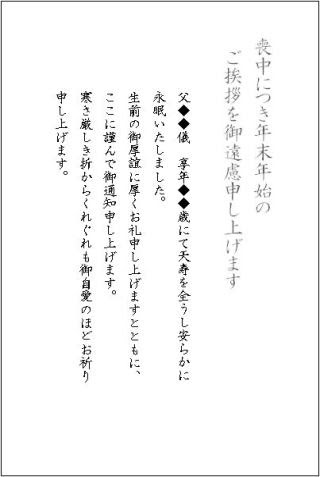 喪中につき年末年始の
ご挨拶を御遠慮申し上げます
父◆◆儀　享年◆◆歳にて天寿を全うし安らかに
永眠いたしました。
生前の御厚誼に厚くお礼申し上げますとともに、
ここに謹んで御通知申し上げます。
寒さ厳しき折からくれぐれも御自愛のほどお祈り
申し上げます。